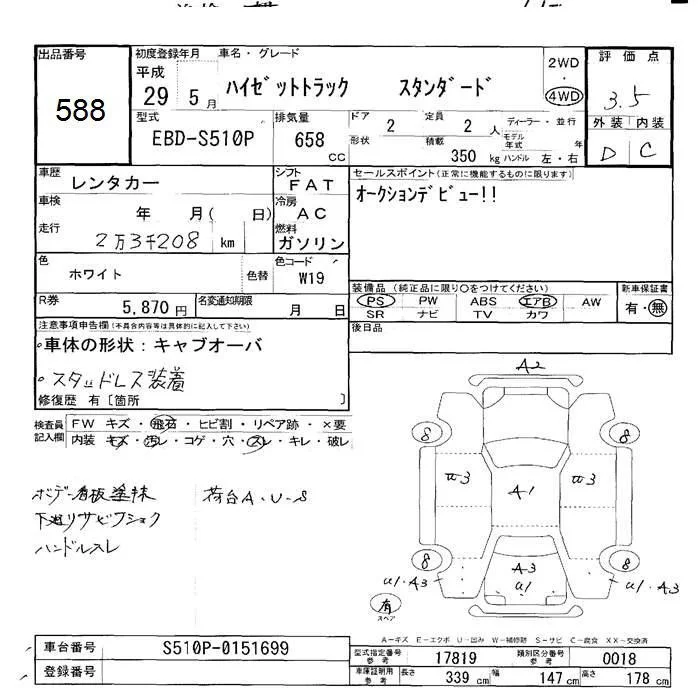 出品番号
588
初度登録年月
平成
29 5 月
車名・グレード
ハイゼットトラック スタンダード
2WD
・
4WD
評価点
3.5
外装 内装
D C
型式
EBD-S510P
排気量
658
CC
ドア
2
定員
2
人
形状
積載
350
kg
ディーラー・並行
モデル
年式
年
ハンドル 左・右
車歴
レンタカー
シフト
FAT
車検
年 月( 日)
冷房
AC
走行
2万3千208 km
燃料
ガソリン
色
ホワイト
色替
色コード
W19
R券
5,870円
名変通知期限
月 日
セールスポイント(正常に機能するものに限ります)
オークションデビュー!!
装備品 (純正品に限り○をつけてください)
PS PW ABS エアB AW
SR ナビ TV カワ
新車保証書
有・無
後日品
注意事項申告欄(不具合内容等は具体的に記入して下さい)
・車体の形状:キャブオーバ
・スタッドレス装着
修復歴 有〔箇所 〕
検査員
記入欄
FW キズ・飛石・ヒビ割・リペア跡・×要
内装 キズ・汚レ・コゲ・穴・スレ・キレ・破レ
ボデー看板塗抹
下廻リサビワショク
ハンドルスレ
荷台A・U・S
A2
8 8
U3 A1 U3
8 8
A3
U1
U1・A3 U1・A3
有
スペア
A-キズ E-エクボ U-凹み W-補修跡 S-サビ C-腐食 XX-交換済
車台番号
S510P-0151699
登録番号
型式指定番号
参考
17819
類別区分番号
参考
0018
車庫証明用
参考
長さ
339 cm
幅
147 cm
高さ
178 cm